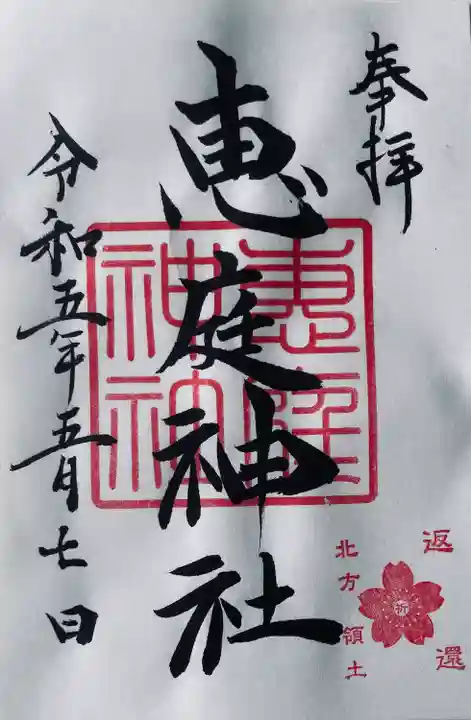 奉拝
恵庭神社
恵庭
神社
令和五年五月七日
返還
祈
北方領土